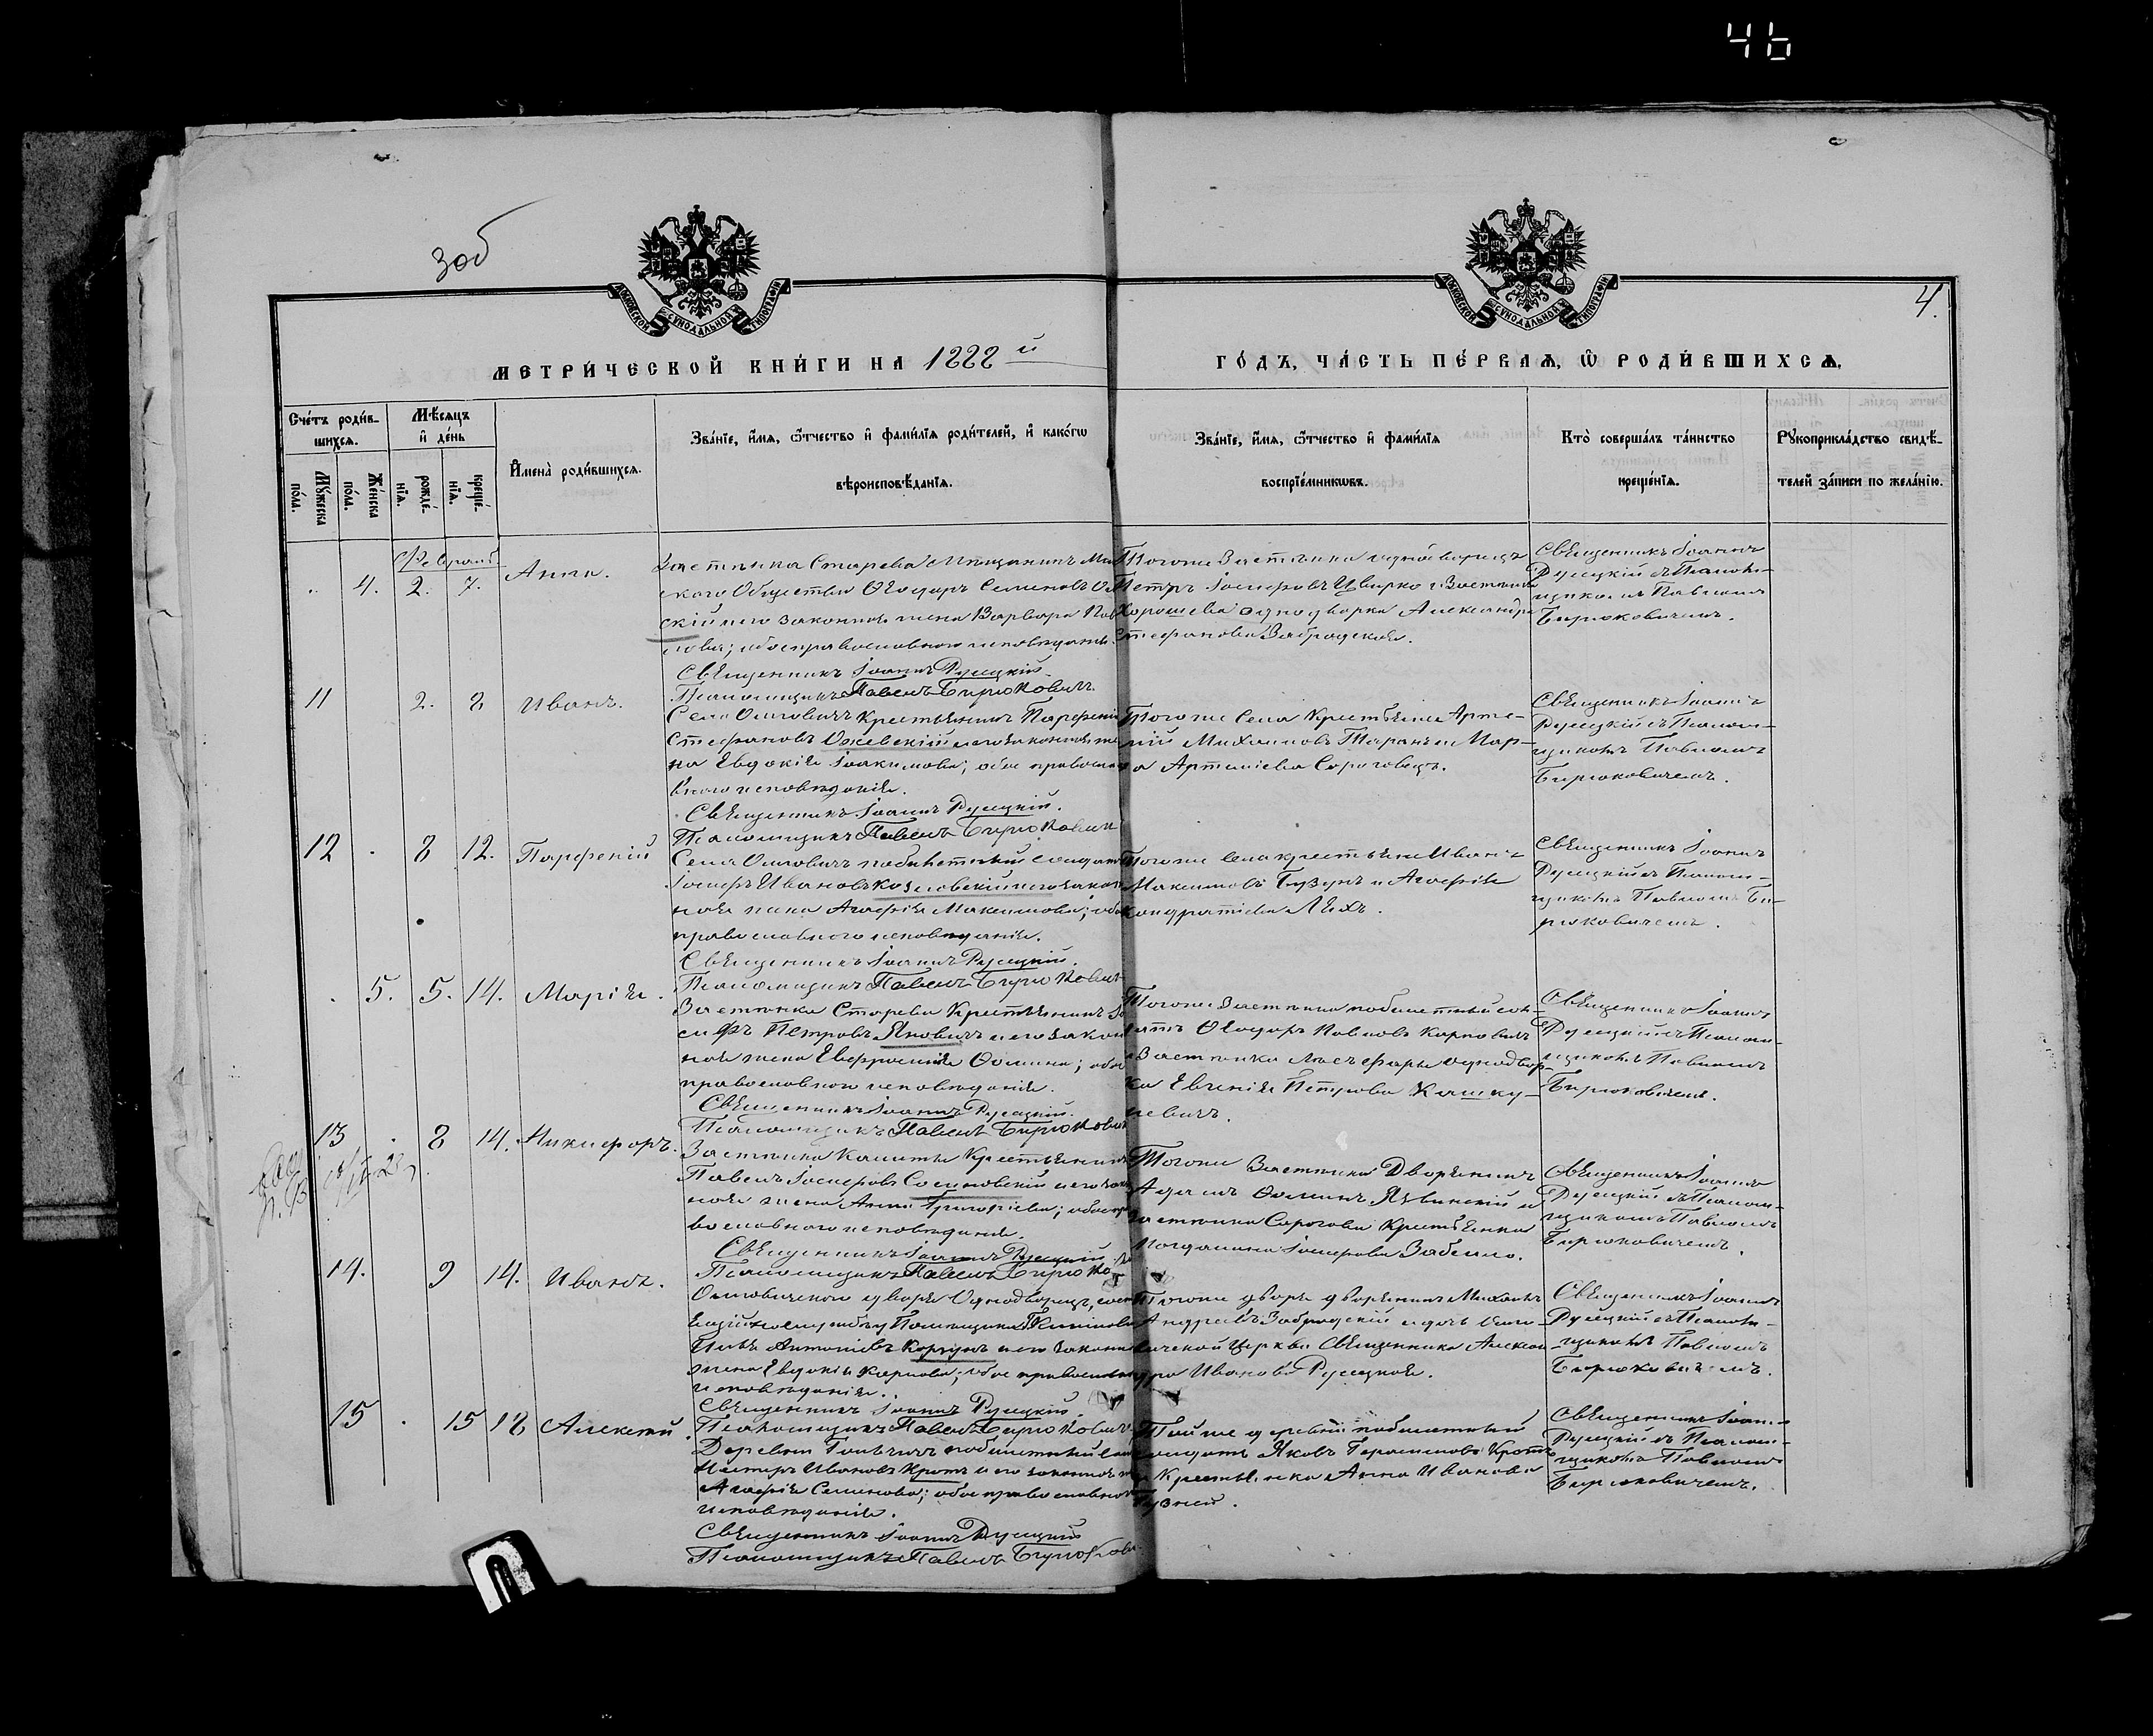 46
зоб
4.
МОСКОВСКОЙ СѴНОДАЛЬНОЙ ТИПОГРАФІИ
МОСКОВСКОЙ СѴНОДАЛЬНОЙ ТИПОГРАФІИ
МЕТРИ́ЧЕСКОЙ КНИ́ГИ НА 1888 й
ГО́ДЪ, ЧА́СТЬ ПЕ́РВАѦ, Ѡ҆ РОДИ́ВШИХСѦ.
Сче́тъ роди́в-
шихсѧ.
Мѣ́сѧцъ
и҆ де́нь
Мꙋ́жеска
по́ла.
Же́нска
по́ла.
рожде́-
нїѧ.
креще́-
нїѧ.
И҆мена̀ роди́вшихсѧ.
Зва́нїе, и҆́мѧ, ѻ҆́тчество и҆ фами́лїѧ роди́телей, и҆ како́гѡ
вѣроисповѣ́данїѧ.
Зва́нїе, и҆́мѧ, ѻ҆́тчество и҆ фами́лїѧ
воспрїе́мникѡвъ.
Кто̀ соверша́лъ та́инство
креще́нїѧ.
Рꙋкоприкла́дство свидѣ́-
телей за́писи по жела́нїю.
Февраль
. 4. 2. 7. Анна.
Застѣнка Старева Мѣщанинъ
скаго Общества Ѳеодоръ Семеновъ
скій и его законная жена Варвара
лова; обое православнаго исповѣданія.
Священникъ Іоаннъ Русецкій.
Псаломщикъ Павелъ Бирюковичъ.
Тогоже Застѣнка однодворецъ
Петръ Іосифовъ Цвирко и Застѣнка
Хорошева однодворка Александра
Стефанова Забродская.
Священникъ Іоаннъ
Русецкій съ Псалом-
щикомъ Павломъ
Бирюковичемъ.
11 2. 8 Иванъ.
Села Осповичъ крестьянинъ Парфеній
Стефановъ и его законная же-
на Евдокія Іоакимова; обое правосла-
внаго исповѣданія.
Священникъ Іоаннъ Русецкій.
Псаломщикъ Павелъ Бирюковичъ
Тогоже Села Крестьяне Арте-
мій Михайловъ Таранъ и Мар-
Артеміева
Священникъ Іоаннъ
Русецкій съ Псалом-
щикомъ Павломъ
Бирюковичемъ.
12 . 8 12. Парфеній
Села Осповичъ побилетный солдатъ
Іосифъ Ивановъ Козловскій и его закон-
ная жена Агафія Максимова; обое
православнаго исповѣданія.
Священникъ Іоаннъ Русецкій.
Псаломщикъ Павелъ Бирюковичъ
Тогоже Села крестьяне Иванъ
Максимовъ Бузунъ и Агафія
Кондратіева Ляхъ.
Священникъ Іоаннъ
Русецкій съ Псалом-
щикомъ Павломъ Би-
рюковичемъ.
. 5. 5. 14. Марія.
Застѣнка Старева Крестьянинъ Іо-
сифъ Петровъ Яновичъ и его закон-
ная жена Евфросинія Ѳомина; обое
православнаго исповѣданія.
Священникъ Іоаннъ Русецкій.
Псаломщикъ Павелъ Бирюковичъ
Тогоже Застѣнка побилетный сол-
датъ Ѳеодоръ Павловъ Карповичъ
и Застѣнка однодвор-
ка Евгенія Петрова Кашку-
ревичъ.
Священникъ Іоаннъ
Русецкій съ Псалом-
щикомъ Павломъ
Бирюковичемъ.
13 . 8 14. Никифоръ.
Застѣнка Крестьянинъ
Павелъ Іосифовъ и его закон-
ная жена Анна Григоріева; обое пра-
вославнаго исповѣданія.
Священникъ Іоаннъ Русецкій
Псаломщикъ Павелъ Бирюко-
Тогоже Застѣнка Дворянинъ
Адамъ Ѳоминъ Язвинскій и
Застѣнка Сорогова Крестьянка
Іосифова Забелло.
Священникъ Іоаннъ
Русецкій съ Псалом-
щикомъ Павломъ
Бирюковичемъ.
14. 9 14. Иванъ.
Осповичскаго двора Однодворецъ,
Помѣщика
Илья Антоновъ Коржунъ и его законная
жена Евдокія Карпова; обое православнаго
исповѣданія.
Священникъ Іоаннъ Русецкій.
Псаломщикъ Павелъ Бирюковичъ
Тогоже двора дворянинъ Михаилъ
Андреевъ Забродскій и дочь Оспо-
вичской Церкви Священника Алексан-
дра Иванова Русецкая.
Священникъ Іоаннъ
Русецкій съ Псалом-
щикомъ Павломъ
Бирюковичемъ.
15 . 15 18 Алексей
Деревни побилетный солдатъ
Ивановъ Кротъ и его законная
Агафія Семенова; обое православнаго
исповѣданія.
Священникъ Іоаннъ Русецкій
Псаломщикъ Павелъ Бирюкови
Тойже деревни побилетный
солдатъ Яковъ Герасимовъ Кротъ
и Крестьянка Анна Иванова
Священникъ Іоаннъ
Русецкій съ Псалом-
щикомъ Павломъ
Бирюковичемъ.